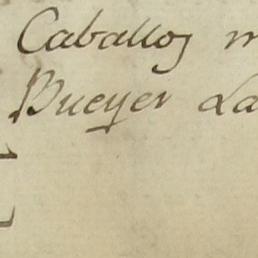 Caballos m
Bueyes La